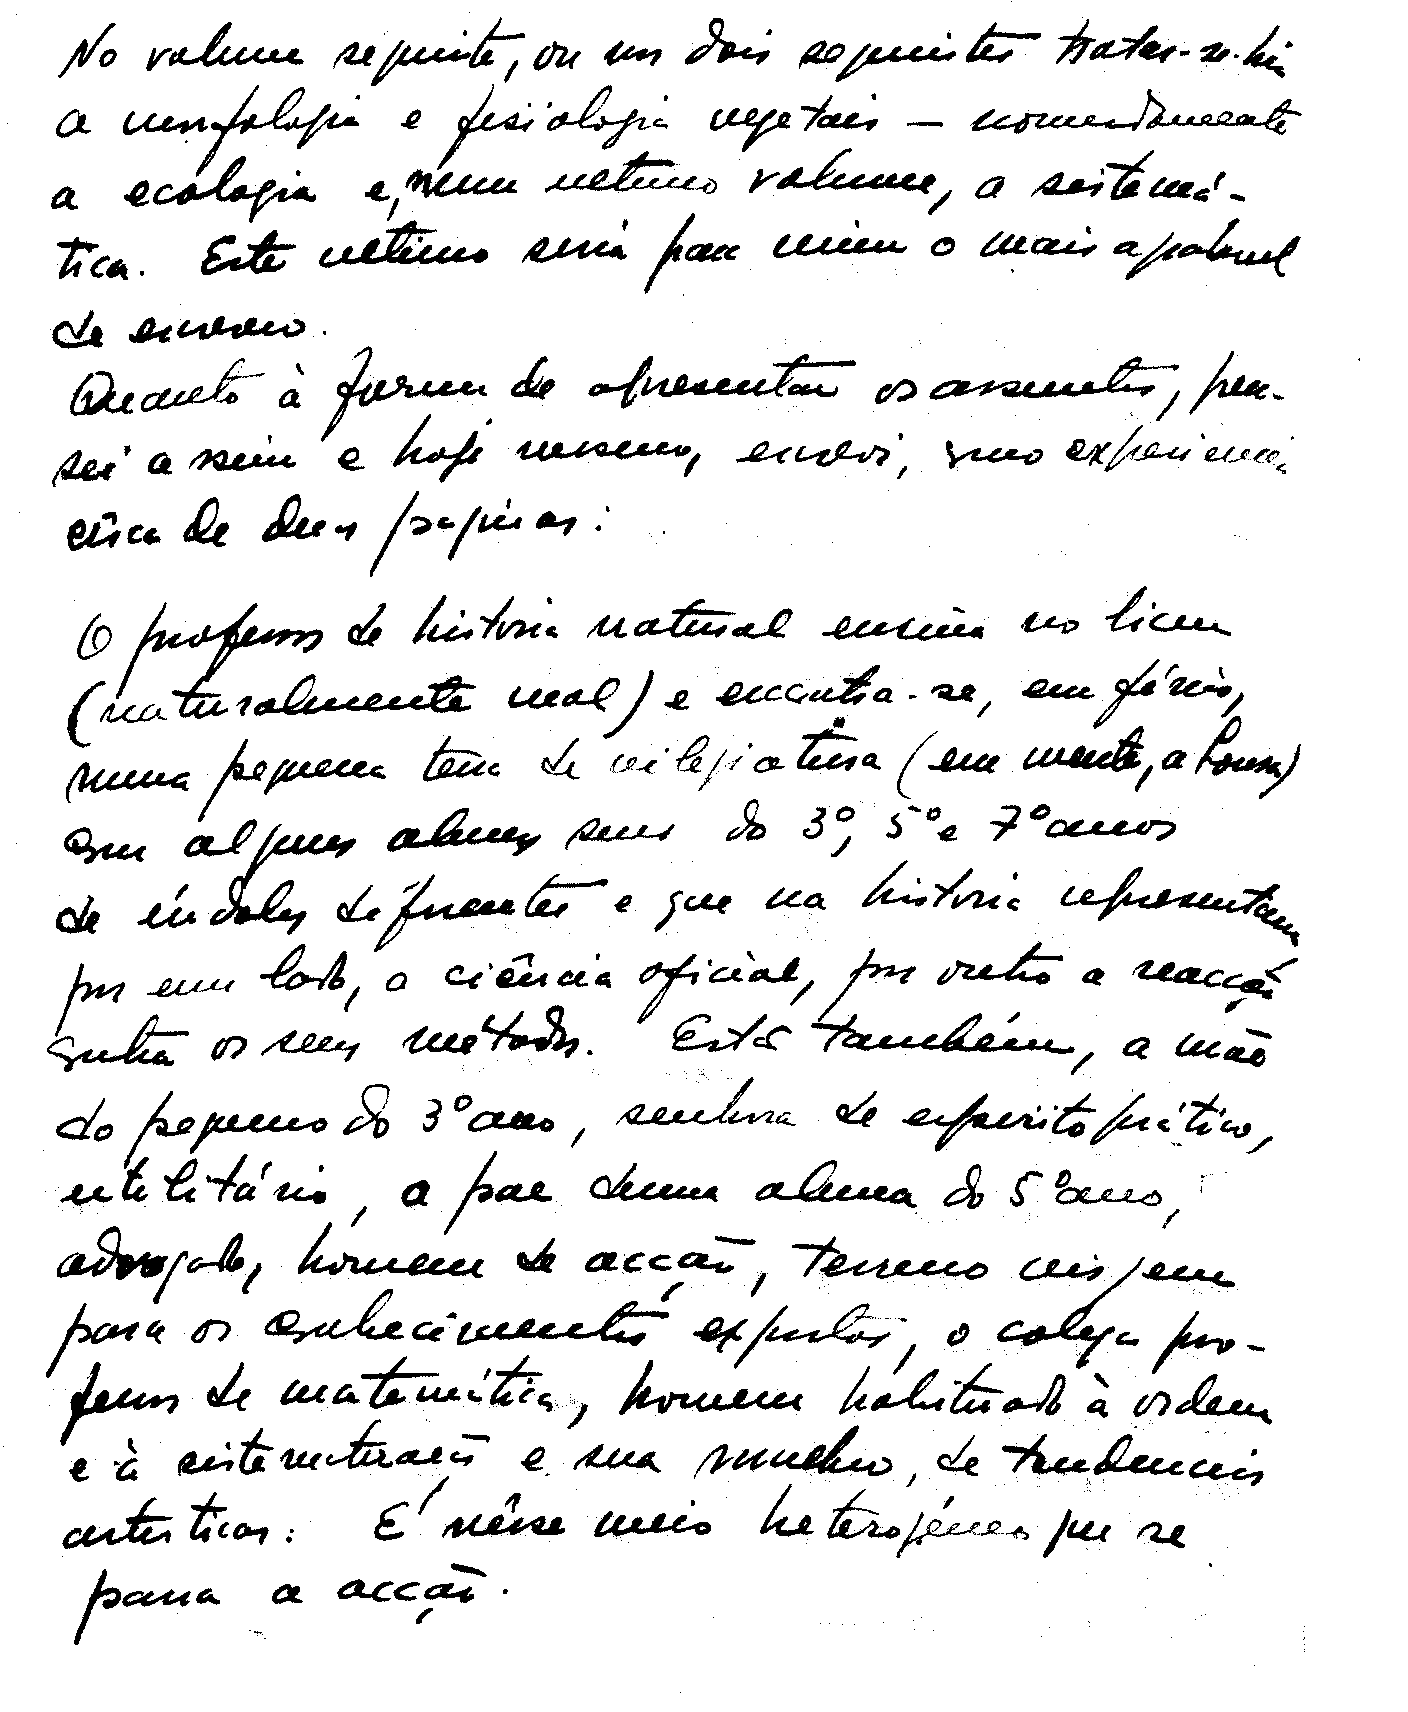 No volume seguinte, ou nos dois seguintes tratar-se-hia
a morfologia e fisiologia vegetais — nomeadamente
a ecologia e, num ultimo volume, a sistemá-
tica. Este ultimo seria para mim o mais agradavel
de escrever.
Quanto à forma de apresentar os assuntos, pen-
sei assim e hoje mesmo, escrevi, como experiencia
cêrca de duas páginas:
O professor de historia natural ensina no liceu
(naturalmente mal) e encontra-se, em férias,
numa pequena terra de vilegiatura (em mente, a Lousa)
com alguns alunos seus do 3º, 5º e 7º anos
de índoles diferentes e que na historia representam
por um lado, a ciência oficial, por outro a reacção
contra os seus métodos. Está também, a mãe
do pequeno do 3º ano, senhora de espirito prático,
utilitário, o pae duma aluna do 5º ano,
advogado, homem de acção, terreno virgem
para os conhecimentos expostos, o colega pro-
fessor de matemática, homem habituado à ordem
e à sistematização e sua mulher, de tendencias
artisticas. É nêsse meio heterogéneo que se
passa a acção.